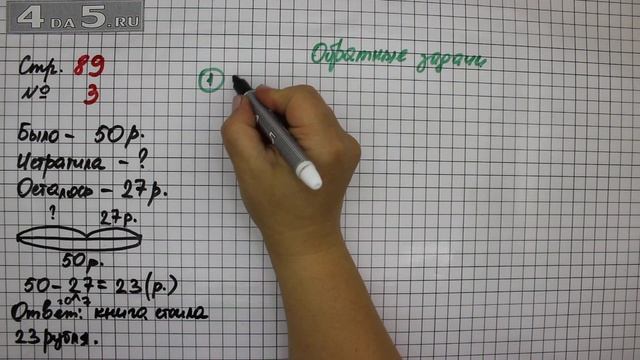 4 DA 5.RU
Стр. 89
№ 3
Было - 50 р.
Истратила - ?
Осталось - 27 р.
? 27 р.
50 р.
50 - 27 = 23 (р.)
20 7
Ответ: книга стоила
23 рубля.
Обратные задачи
1